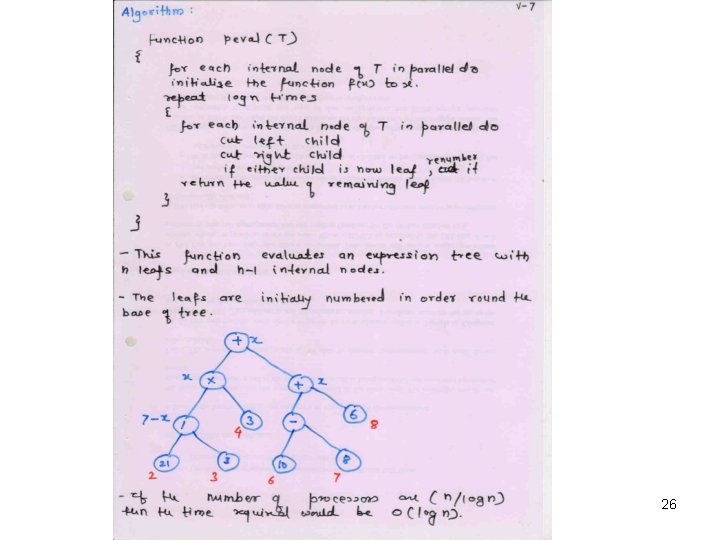 Algorithm :
V-7
function peval ( T )
{
for each internal node of T in parallel do
initialize the function f(x) to x.
repeat logn times
{
for each internal node of T in parallel do
cut left child
cut right child
if either child is now leaf, renumber it
return the value of remaining leaf
}
}
- This function evaluates an expression tree with
n leafs and n-1 internal nodes.
- The leafs are initially numbered in order round the
base of tree.
+ x
x × + x
7-x / 3 - 6 8
4
21 3 10 8
2 3 6 7
- If the number of processors are (n/logn)
then the time required would be O(logn).
26